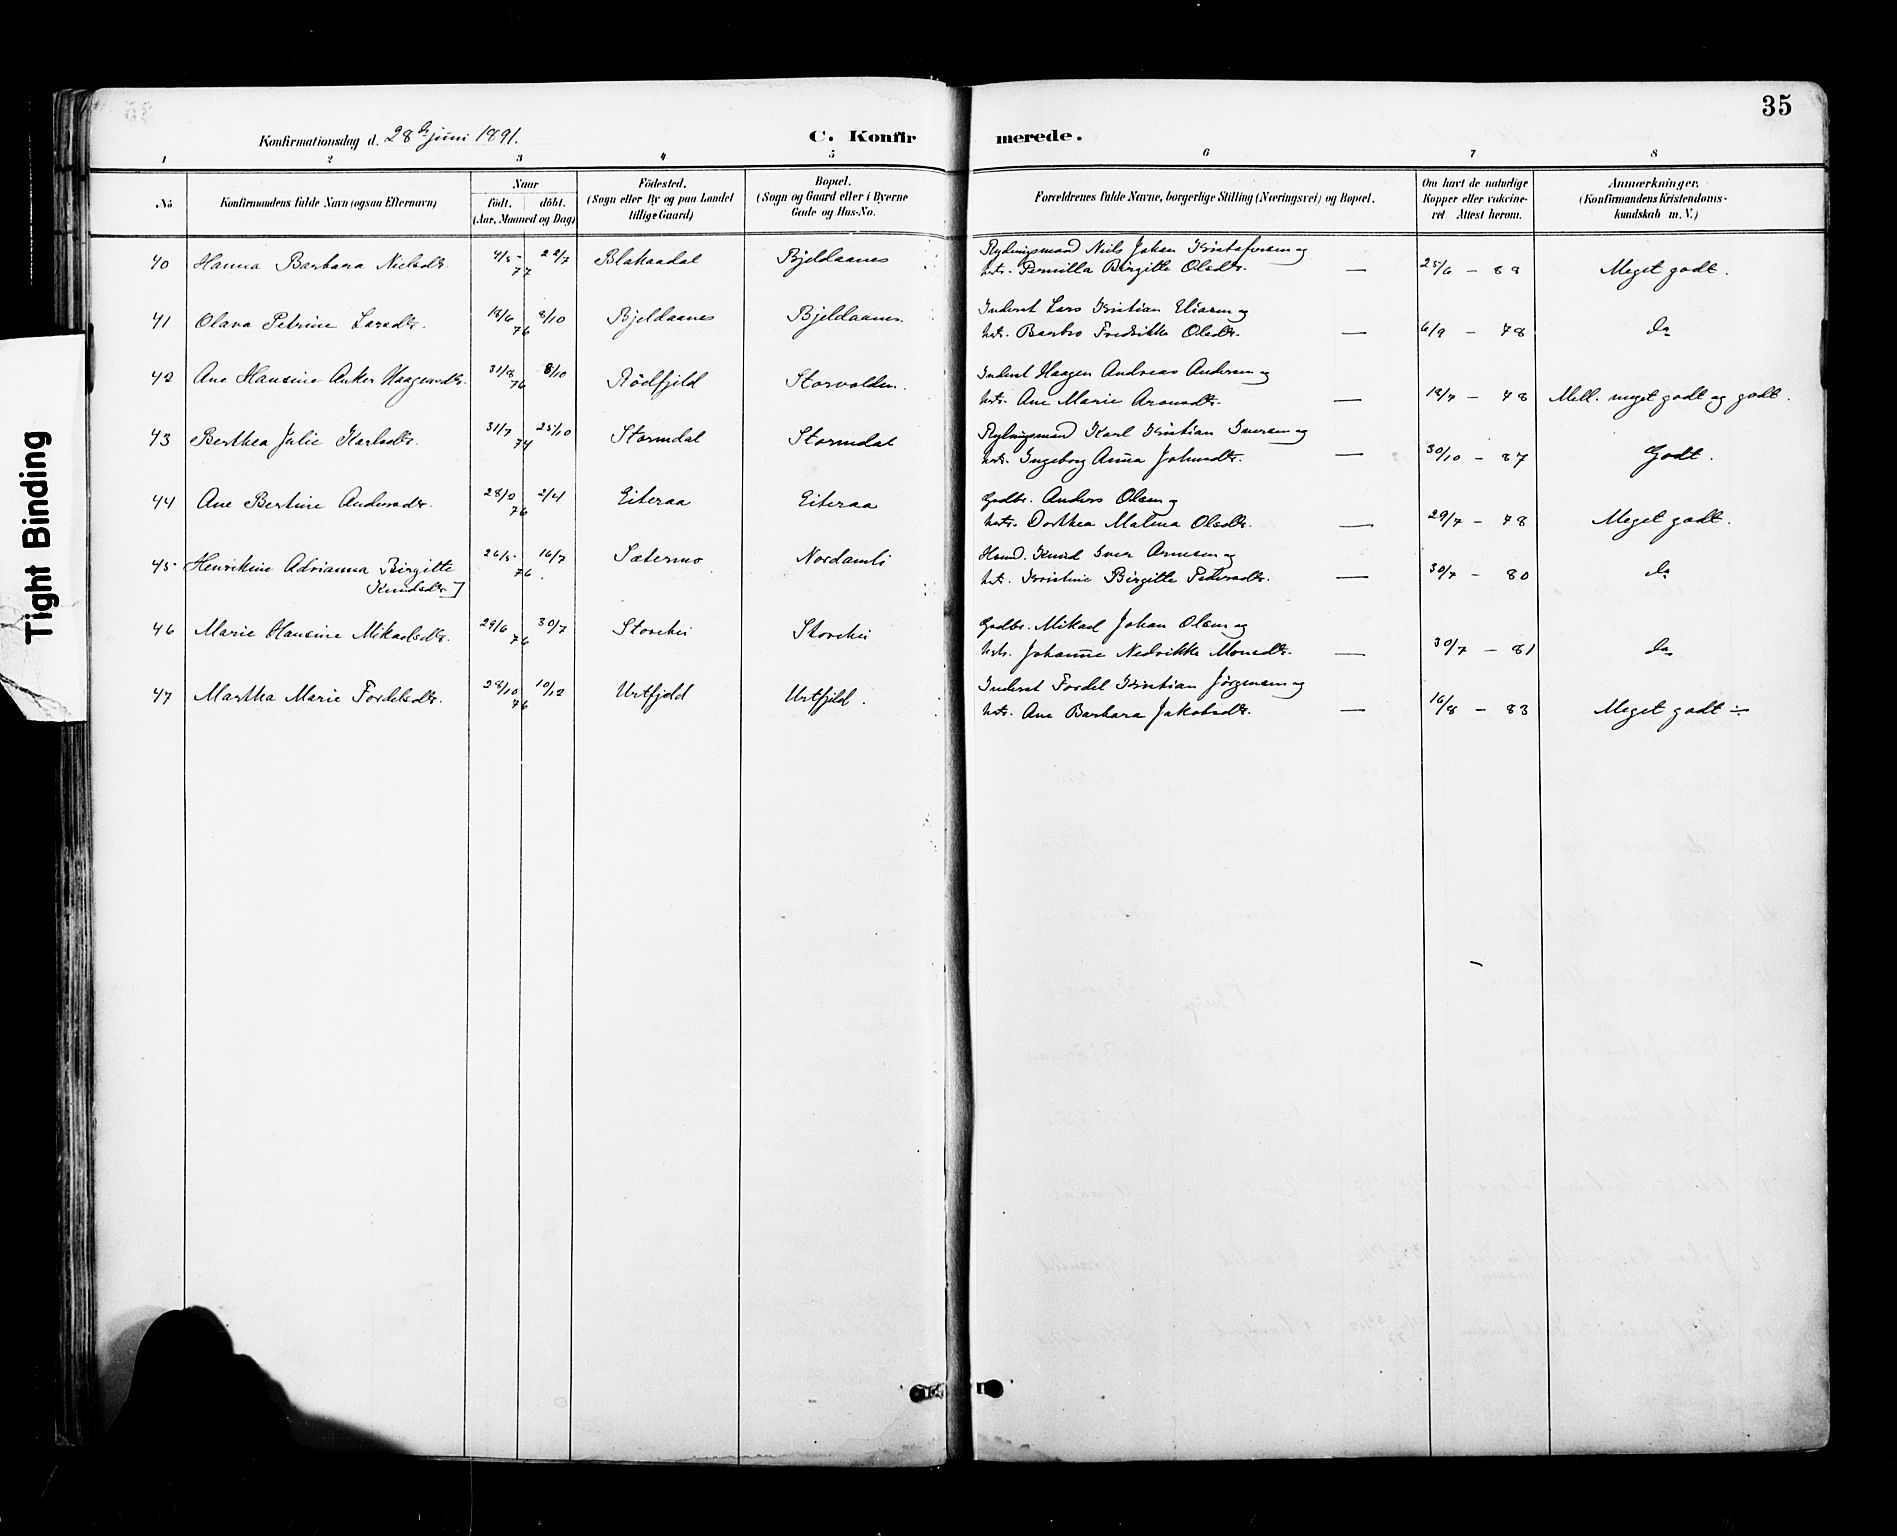 35
Konfirmationsdag d. 28de juni 1891.
C. Konfir merede.
1 2 3 4 5 6 7 8
No
Konfirmandens fulde Navn (ogsaa Efternavn)
Naar
födt. döbt.
(Aar, Maaned og Dag)
Födested.
(Sogn eller By og paa Landet
tillige Gaard)
Bopæl.
(Sogn og Gaard eller i Byerne
Gade og Hus-No.
Forældrenes fulde Navne, borgerlige Stilling (Næringsvei) og Bopæl.
Om havt de naturlige
Kopper eller vakcine-
ret Attest herom.
Anmærkninger.
(Konfirmandens Kristendoms-
kundskab m. V.)
40 Hanna Barbara Nielsdtr. 4/5 - 77 22/7 Blakaadal Bjeldaanes
Rydningsmand Niels Johan Kristofersen og
hstr. Pernilla Birgitte Olsdtr. — 25/6 - 88 Meget godt.
41 Olava Petrine Larsdtr. 18/6 76 8/10 Bjeldaanes Bjeldaanes.
Inderst Lars Kristian Eliasen og
hstr. Barbro Fredrikke Olsdtr. — 6/9 - 78 do
42 Ane Hansine Anker Haagensdtr. 31/8 76 8/10 Rödfjeld Storvolden.
Inderst Haagen Andreas Andersen og
hstr. Ane Marie Aronsdtr. — 18/7 - 78 Mell. meget godt og godt.
43 Berthea Julie Karlsdtr. 31/7 74 25/10 Stormdal Stormdal
Rydningsmand Karl Kristian Iversen og
hstr. Ingeborg Anna Johnsdtr. — 30/10 - 87 Godt.
44 Ane Bertine Andersdtr. 76 2/4 Eiteraa Eiteraa
Gadbr. Anders Olsen og
hstr. Dorthea Malena Olsdtr. — 29/7 - 78 Meget godt.
45 Henrikine Adrianna Birgitte
Knudsdtr] 26/5 - 76 16/7 Sætermo Nordamli
Hsmd. Knud Iver Arnesen og
hst. Kristine Birgitte Pedersdtr. — 30/7 - 80 do
46 Marie Hansine Mikaelsdtr. 29/6 76 30/7 Storhei Storhei
Gadbr. Mikael Johan Olsen og
hstr. Johanne Nedrikke Monsdtr. — 30/7 - 81 do
47 Martha Marie Fordelsdtr. 28/10 76 10/12 Urtfjeld Urtfjeld.
Inderst Fordel Kristian Jörgensen og
hstr. Ane Barbara Jakobsdtr. — 16/8 - 83 Meget godt ÷
Tight Binding